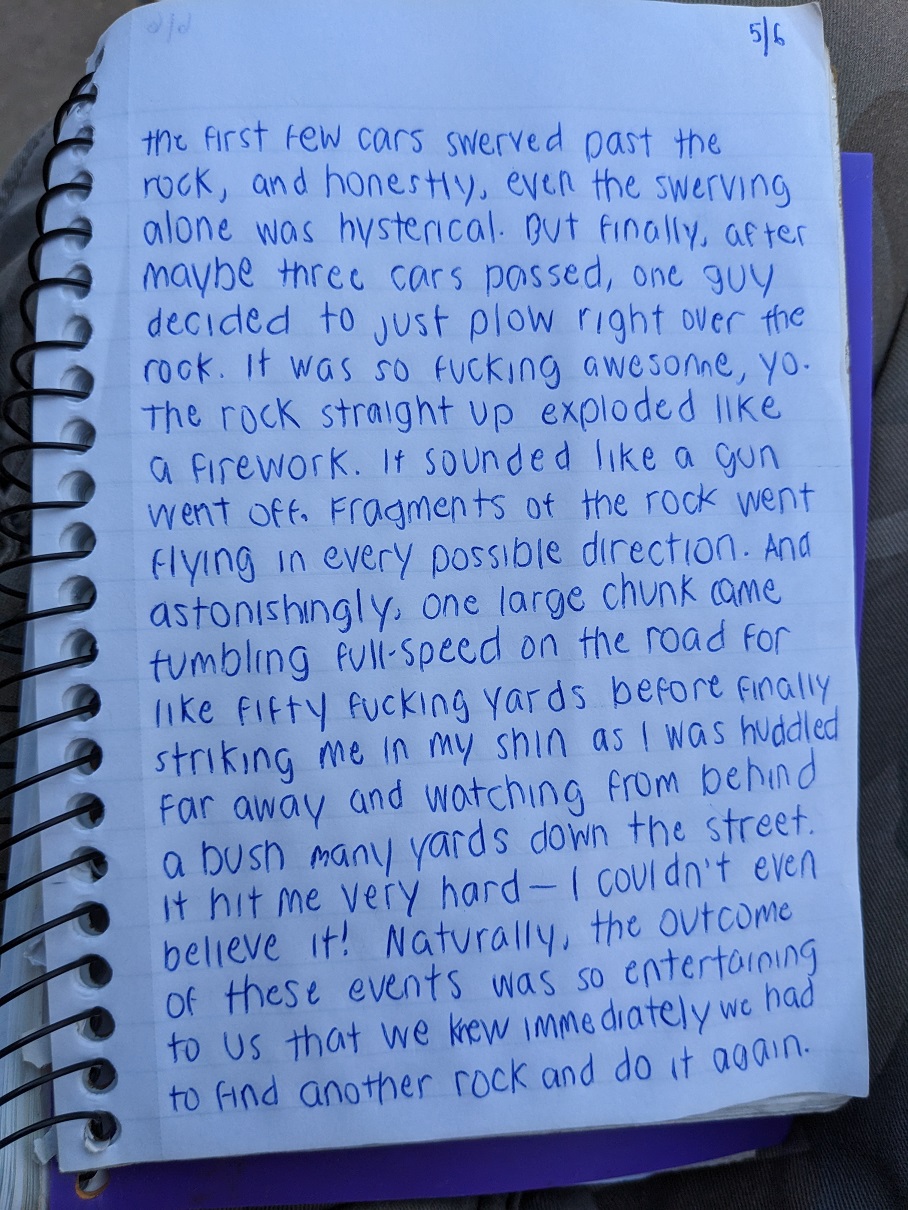 5/6
the first few cars swerved past the
rock, and honestly, even the swerving
alone was hysterical. But finally, after
maybe three cars passed, one guy
decided to just plow right over the
rock. It was so fucking awesome, yo.
The rock straight up exploded like
a firework. It sounded like a gun
went off. Fragments of the rock went
flying in every possible direction. And
astonishingly, one large chunk came
tumbling full-speed on the road for
like fifty fucking yards before finally
striking me in my shin as I was huddled
far away and watching from behind
a bush many yards down the street.
It hit me very hard — I couldn't even
believe it! Naturally, the outcome
of these events was so entertaining
to us that we knew immediately we had
to find another rock and do it again.